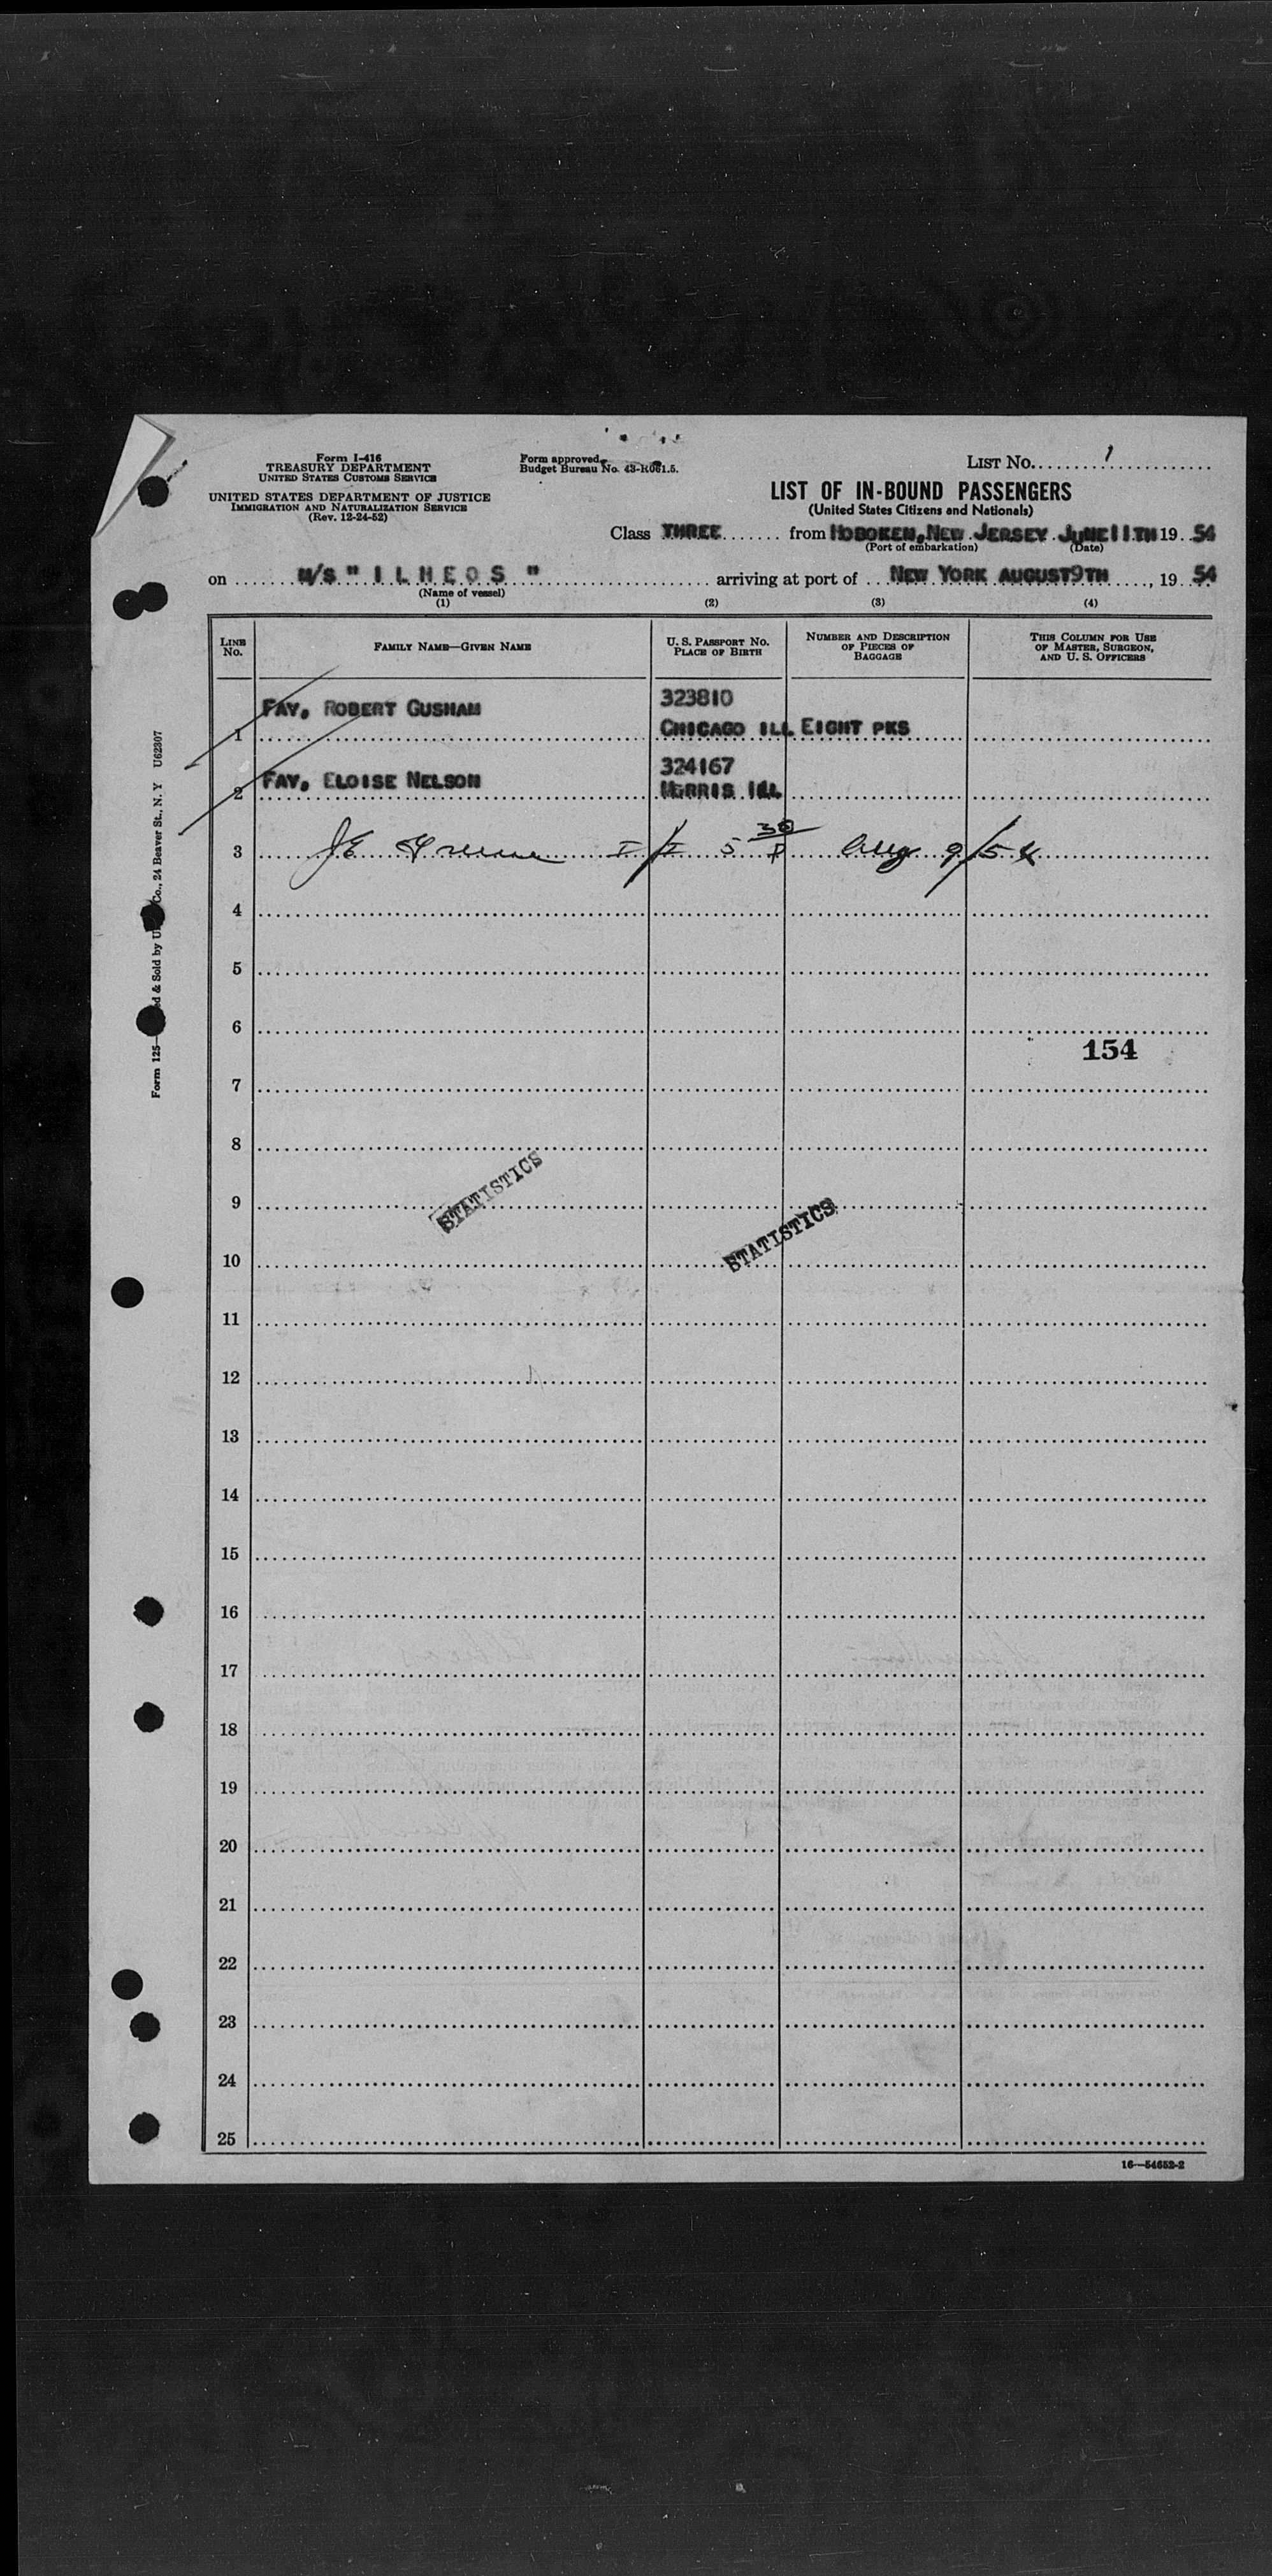 Form I-416
TREASURY DEPARTMENT
UNITED STATES CUSTOMS SERVICE
UNITED STATES DEPARTMENT OF JUSTICE
IMMIGRATION AND NATURALIZATION SERVICE
(Rev. 12-24-52)
Form approved.
Budget Bureau No. 43-R061.5.
LIST No. 1
LIST OF IN-BOUND PASSENGERS
(United States Citizens and Nationals)
Class THREE from HOBOKEN, NEW JERSEY JUNE 11TH 19 54
(Port of embarkation) (Date)
on M/S " I L H E O S " arriving at port of NEW YORK AUGUST 9TH, 19 54
(Name of vessel)
(1) (2) (3) (4)
LINE No. FAMILY NAME—GIVEN NAME U. S. PASSPORT NO. PLACE OF BIRTH NUMBER AND DESCRIPTION OF PIECES OF BAGGAGE THIS COLUMN FOR USE OF MASTER, SURGEON, AND U. S. OFFICERS
FAY, ROBERT GUSHAM 323810
1 CHICAGO ILL EIGHT PKS
FAY, ELOISE NELSON 324167
2 MORRIS ILL
3 I/I 5 30 P Aug 9/54
4
5
6
154
7
8
STATISTICS
9
STATISTICS
10
11
12
13
14
15
16
17
18
19
20
21
22
23
24
25
16—54652-2
Form 125
ed & Sold by
Co., 24 Beaver St., N. Y U62307